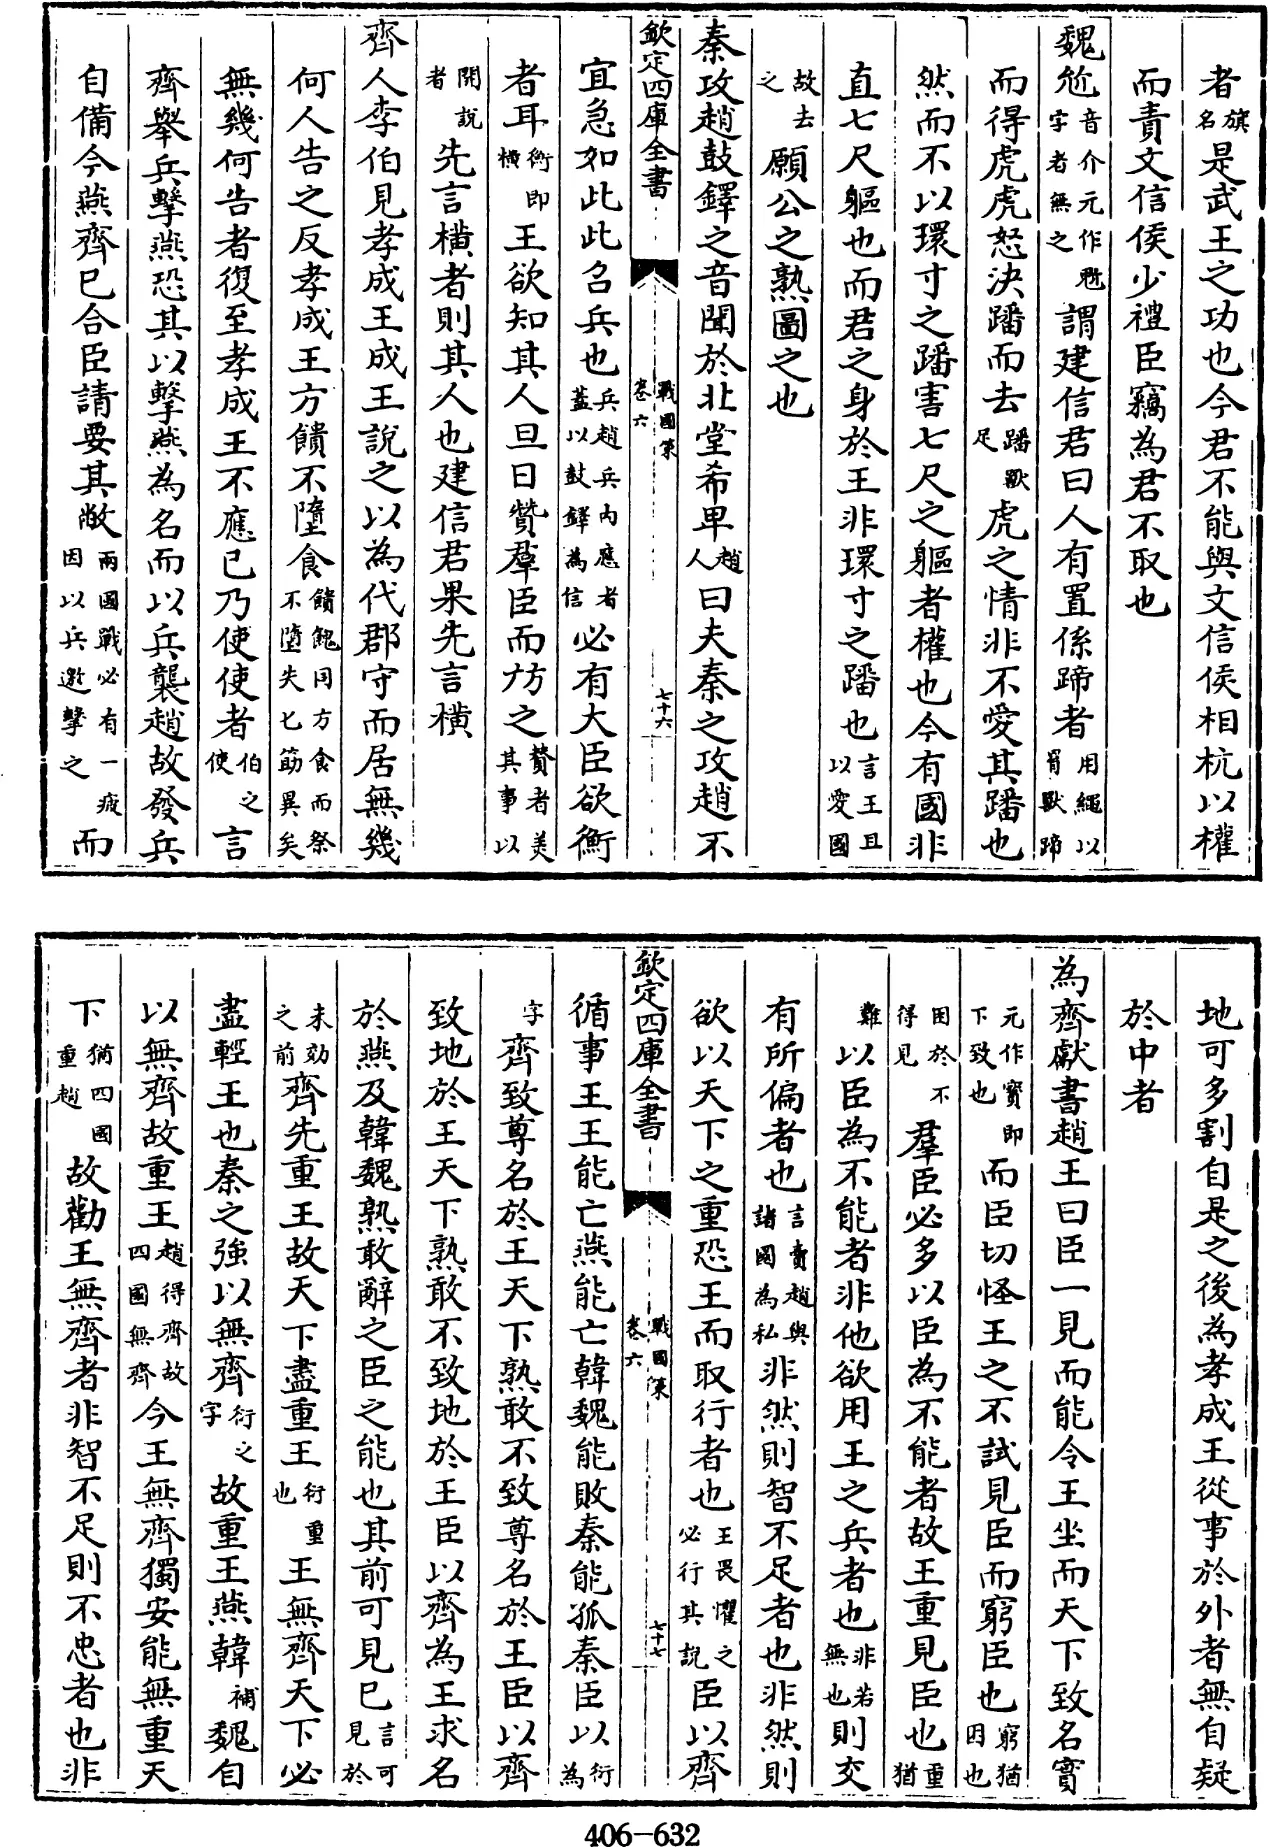 者旗名是武王之功也今君不能與文信侯相杭以權
而責文信侯少禮臣竊為君不取也
魏尬音介元作尲字者無之謂建信君曰人有置係蹄者用繩以罥獸蹄
而得虎虎怒決蹯而去蹯獸足虎之情非不愛其蹯也
然而不以環寸之蹯害七尺之軀者權也今有國非
直七尺軀也而君之身於王非環寸之蹯也言王且以愛國
故去之願公之熟圖之也
秦攻趙鼓鐸之音聞於北堂希卑趙人曰夫秦之攻趙不
欽定四庫全書
戰國策
卷六
七十六
宜急如此此召兵也兵趙兵內應者蓋以鼓鐸為信必有大臣欲衡
者耳衡即橫王欲知其人旦日贊羣臣而訪之贊者美其事以
開說者先言橫者則其人也建信君果先言橫
齊人李伯見孝成王成王說之以為代郡守而居無幾
何人告之反孝成王方饋不墮食饋餽同方食而祭不墮失匕筯異矣
無幾何告者復至孝成王不應已乃使使者伯之使言
齊舉兵擊燕恐其以擊燕為名而以兵襲趙故發兵
自備今燕齊已合臣請要其敝兩國戰必有一疲因以兵邀擊之而
地可多割自是之後為孝成王從事於外者無自疑
於中者
為齊獻書趙王曰臣一見而能令王坐而天下致名寳
元作寳即下致也而臣切怪王之不試見臣而窮臣也窮猶因也
困於不得見羣臣必多以臣為不能者故王重見臣也重猶
難以臣為不能者非他欲用王之兵者也非若無也則交
有所偏者也言賣趙與諸國為私非然則智不足者也非然則
欲以天下之重恐王而取行者也王畏懼之必行其說臣以齊
欽定四庫全書
戰國策
卷六
七十七
循事王王能亡燕能亡韓魏能敗秦能孤秦臣以衍為
字齊致尊名於王天下熟敢不致尊名於王臣以齊
致地於王天下熟敢不致地於王臣以齊為王求名
於燕及韓魏熟敢辭之臣之能也其前可見已言可見於
未効之前齊先重王故天下盡重王衍重也王無齊天下必
盡輕王也秦之強以無齊衍之字故重王燕韓補魏自
以無齊故重王趙得齊故四國無齊今王無齊獨安能無重天
下猶四國重趙故勸王無齊者非智不足則不忠者也非
406-632